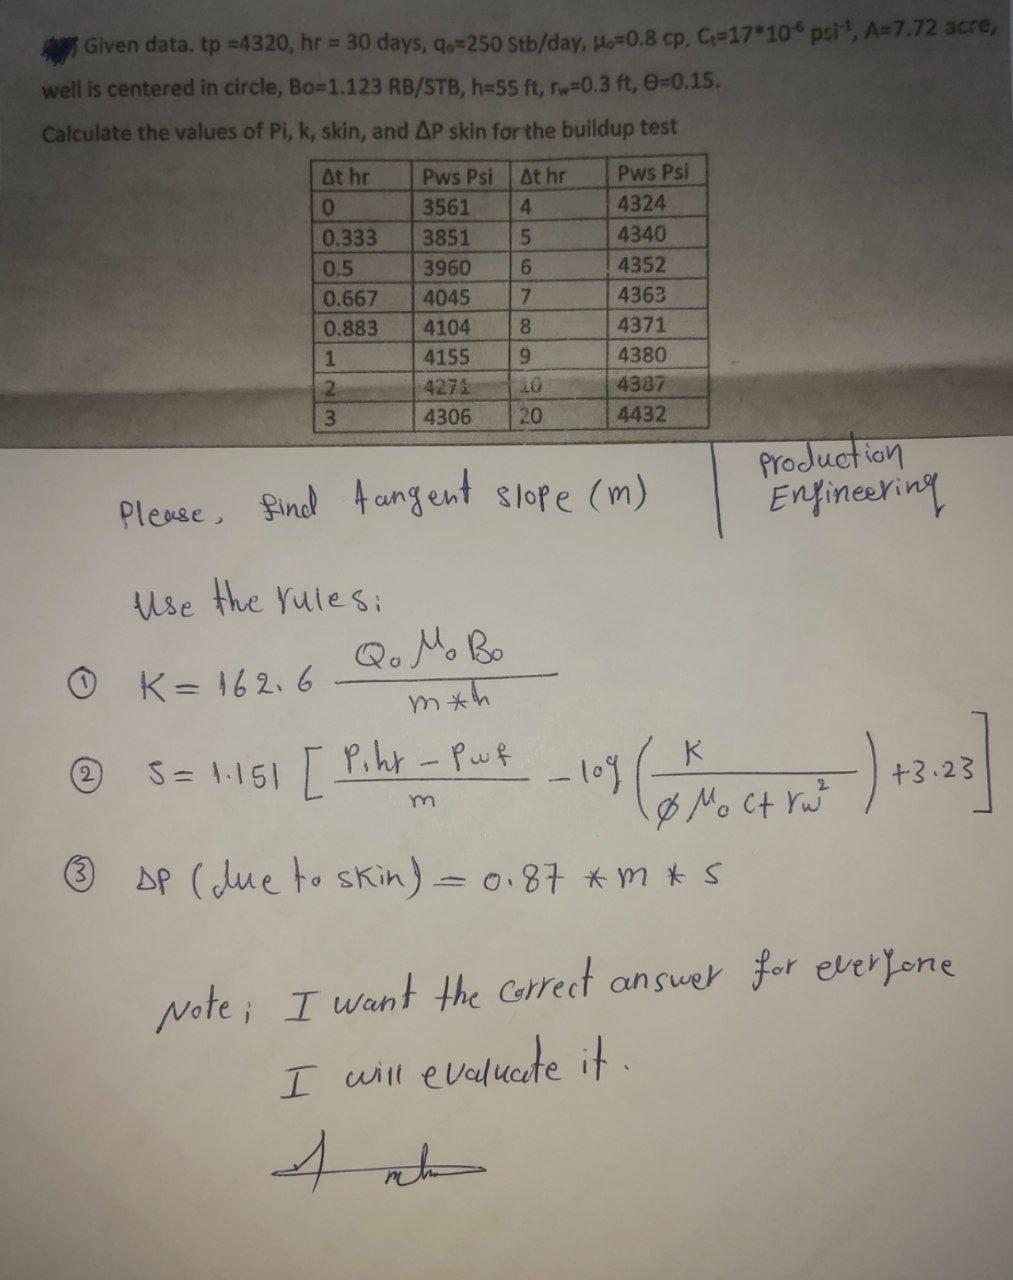 Given data. tp =4320, hr = 30 days, qₒ=250 Stb/day, μₒ=0.8 cp, Cₜ=17*10⁻⁶ psi⁻¹, A=7.72 acre,
well is centered in circle, Bo=1.123 RB/STB, h=55 ft, r_w=0.3 ft, Θ=0.15.
Calculate the values of Pi, k, skin, and ΔP skin for the buildup test
Δt hr Pws Psi Δt hr Pws Psi
0 3561 4 4324
0.333 3851 5 4340
0.5 3960 6 4352
0.667 4045 7 4363
0.883 4104 8 4371
1 4155 9 4380
2 4271 10 4387
3 4306 20 4432
Please, find tangent slope (m)
Production
Engineering
Use the rules:
① K = 162.6 Qₒ Mₒ Bₒ / m*h
② S = 1.151 [ P1hr - Pwf / m - log ( K / ø Mₒ Ct rw² ) +3.23 ]
③ ΔP (due to skin) = 0.87 * m * s
Note; I want the correct answer for everyone
I will evaluate it.